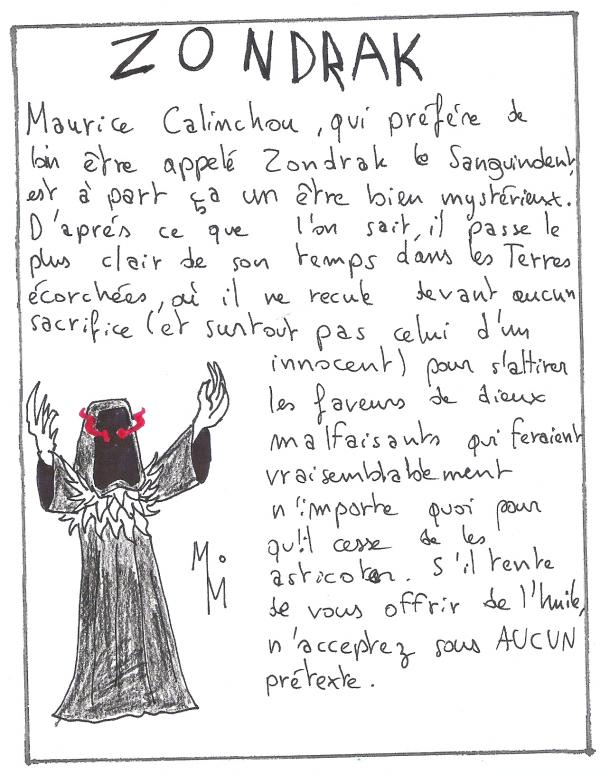 ZONDRAK
Maurice Calinchou, qui préfére de
loin être appelé Zondrak le Sanguindent,
est à part ça un être bien mystérieux.
D'aprés ce que l'on sait, il passe le
plus clair de son temps dans les Terres
écorchées, où il ne recule devant aucun
sacrifice (et surtout pas celui d'un
innocent) pour s'attirer
les faveurs de dieux
malfaisants qui feraient
vraisemblablement
n'importe quoi pour
qu'il cesse de les
asticoter. S'il tente
de vous offrir de l'huile,
n'acceptez sous AUCUN
prétexte.
M.
M